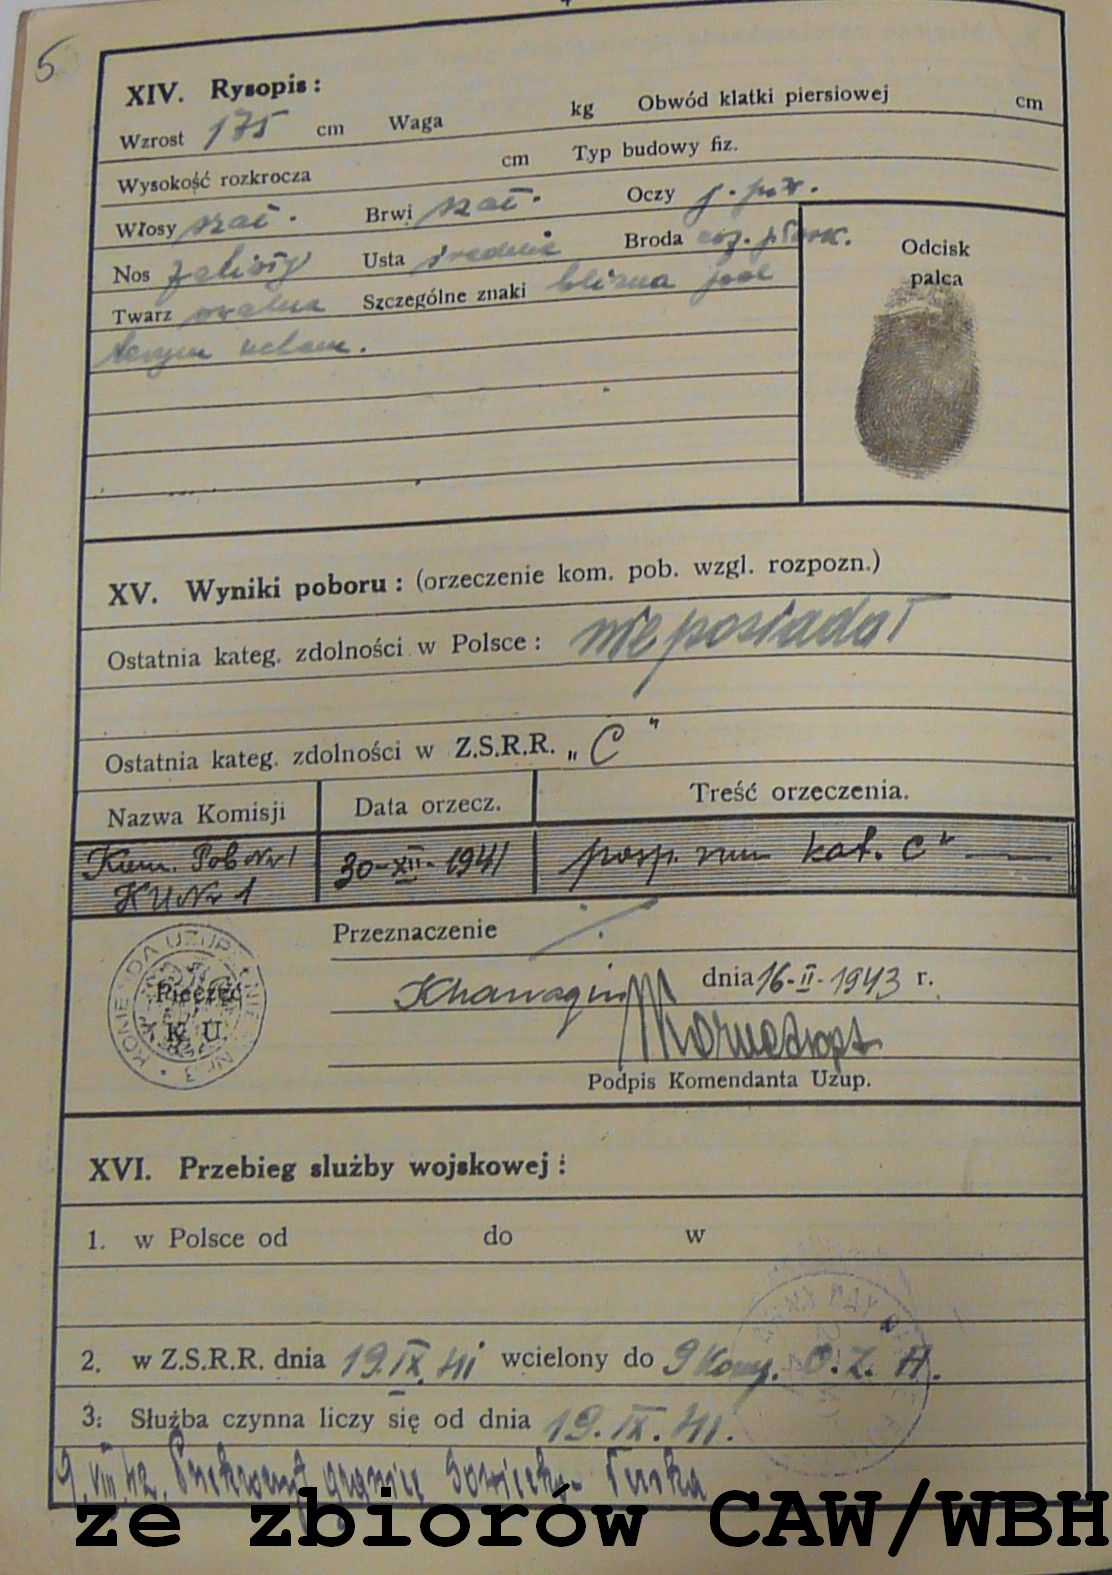 5
XIV. Rysopis:
Wzrost 175 cm Waga kg Obwód klatki piersiowej cm
Wysokość rozkrocza cm Typ budowy fiz.
Włosy szat. Brwi szat. Oczy j. piw.
Nos Usta średnie Broda
Twarz owalna Szczególne znaki blizna pod
lewym uchem.
Odcisk
palca
XV. Wyniki poboru: (orzeczenie kom. pob. wzgl. rozpozn.)
Ostatnia kateg. zdolności w Polsce: nie posiadał
Ostatnia kateg. zdolności w Z.S.R.R. „C"
Nazwa Komisji Data orzecz. Treść orzeczenia.
Kom. Pob Nr 1 30-XII-1941 posp. rusz kat. C"
KU Nr 1
Przeznaczenie
Pieczęć
K. U.
KOMENDA UZUPEŁNIEŃ NR. 3
Khanaqin dnia 16-II-1943 r.
Podpis Komendanta Uzup.
XVI. Przebieg służby wojskowej:
1. w Polsce od do w
2. w Z.S.R.R. dnia 19.IX.41 wcielony do 9 Komp. O.Z.A.
3. Służba czynna liczy się od dnia 19.IX.41.
9.VIII.42. granicę
ze zbiorów CAW/WBH